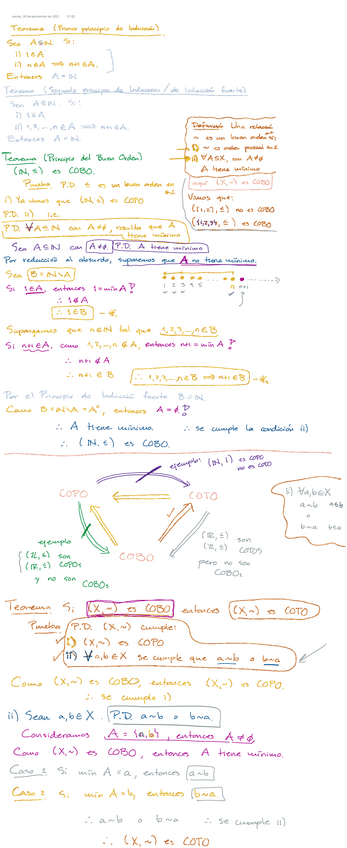 jueves, 30 de septiembre de 2021 17:02
Teorema (Primer principio de Inducción).
Sea A⊆ℕ. Si:
i) 1∈A
ii) n∈A ⟹ n+1∈A.
Entonces A=ℕ
Teorema (Segundo principio de Inducción / de inducción fuerte)
Sea A⊆ℕ. Si:
i) 1∈A
ii) 1,2,...,n∈A ⟹ n+1∈A.
Entonces A=ℕ.
Definición Una relación
~ es un buen orden si:
i) ~ es orden parcial en X
ii) ∀A⊆X, con A≠∅
A tiene mínimo
aquí (X,~) es COBO
Vimos que:
no es COBO
es COBO
Teorema (Principio del Buen Orden)
(ℕ,≤) es COBO.
Prueba P.D. ≤ es un buen orden en ℕ.
i) Ya vimos que (ℕ,≤) es COPO
P.D. ii) i.e.
P.D. ∀A⊆ℕ con A≠∅, resulta que A tiene mínimo
Sea A⊆ℕ con A≠∅ P.D. A tiene mínimo
Por reducción al absurdo, supongamos que A no tiene mínimo.
Sea B=ℕ\A
Si 1∈A, entonces 1=mínA
∴ 1∉A
∴ 1∈B
1 2 3 4 5 n n+1
Supongamos que n∈ℕ tal que 1,2,3,...,n∈B
Si n+1∈A, como 1,2,...,n∉A, entonces n+1=mín A
∴ n+1∉A
∴ n+1∈B ∴ 1,2,3,...,n∈B ⟹ n+1∈B
Por el Principio de Inducción fuerte B=ℕ
Como B=ℕ\A=Aᶜ, entonces A=∅
∴ A tiene mínimo. ∴ se cumple la condición ii)
∴ (ℕ,≤) es COBO.
ejemplo: (ℕ,|) es COPO
no es COTO
COPO COTO
COBO
ejemplo
(ℤ,≤) son
(ℝ,≤) COPOs
y no son
COBOs
(ℝ,≤) son
(ℤ,≤) COTOS
pero no son
COBOs
ii) ∀a,b∈X
a~b a≤b
o
b~a b≤a
Teorema Si (X,~) es COBO entonces (X,~) es COTO
Prueba P.D. (X,~) cumple:
i) (X,~) es COPO
ii) ∀a,b∈X se cumple que a~b o b~a
Como (X,~) es COBO, entonces (X,~) es COPO.
∴ se cumple i)
ii) Sean a,b∈X. P.D. a~b o b~a.
Consideramos A={a,b}, entonces A≠∅
Como (X,~) es COBO, entonces A tiene mínimo.
Caso 1 Si mín A=a, entonces a~b
Caso 2 Si mín A=b, entonces b~a.
∴ a~b o b~a ∴ se cumple ii)
∴ (X,~) es COTO